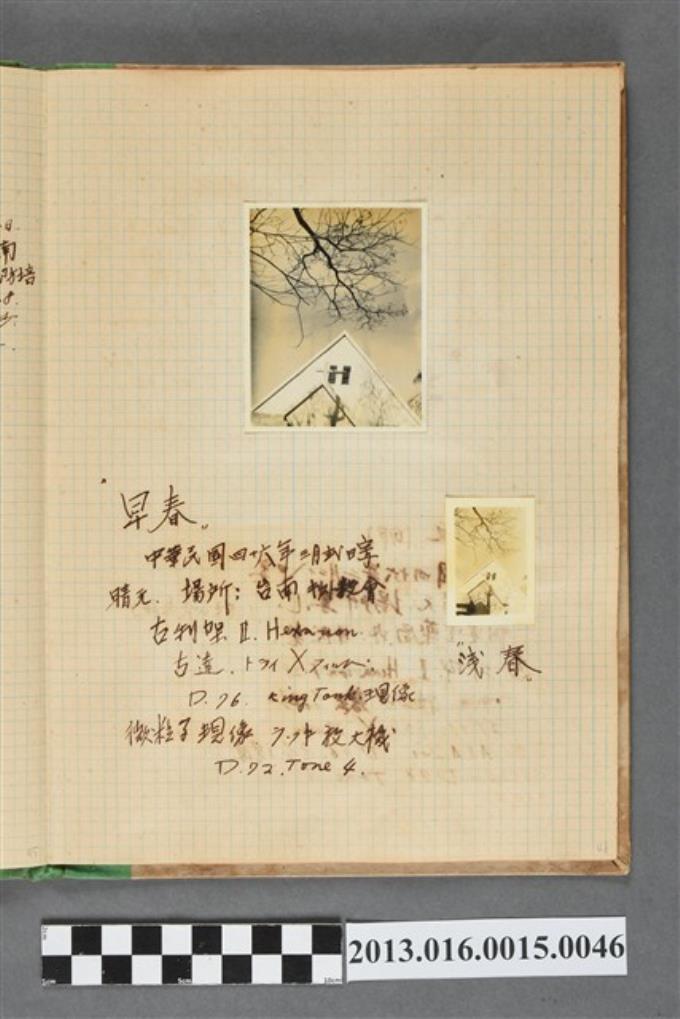 日.
南
培
早春
中華民國四十六年二月弍日
晴天. 場所: 台南 教會
古利架 II. Hexanon
古達. トライX フィルム.
D.76. King Tank. 現像
微粒子現像 ラッキ 放大機
D.72. Tone 4.
浅春
2013.016.0015.0046